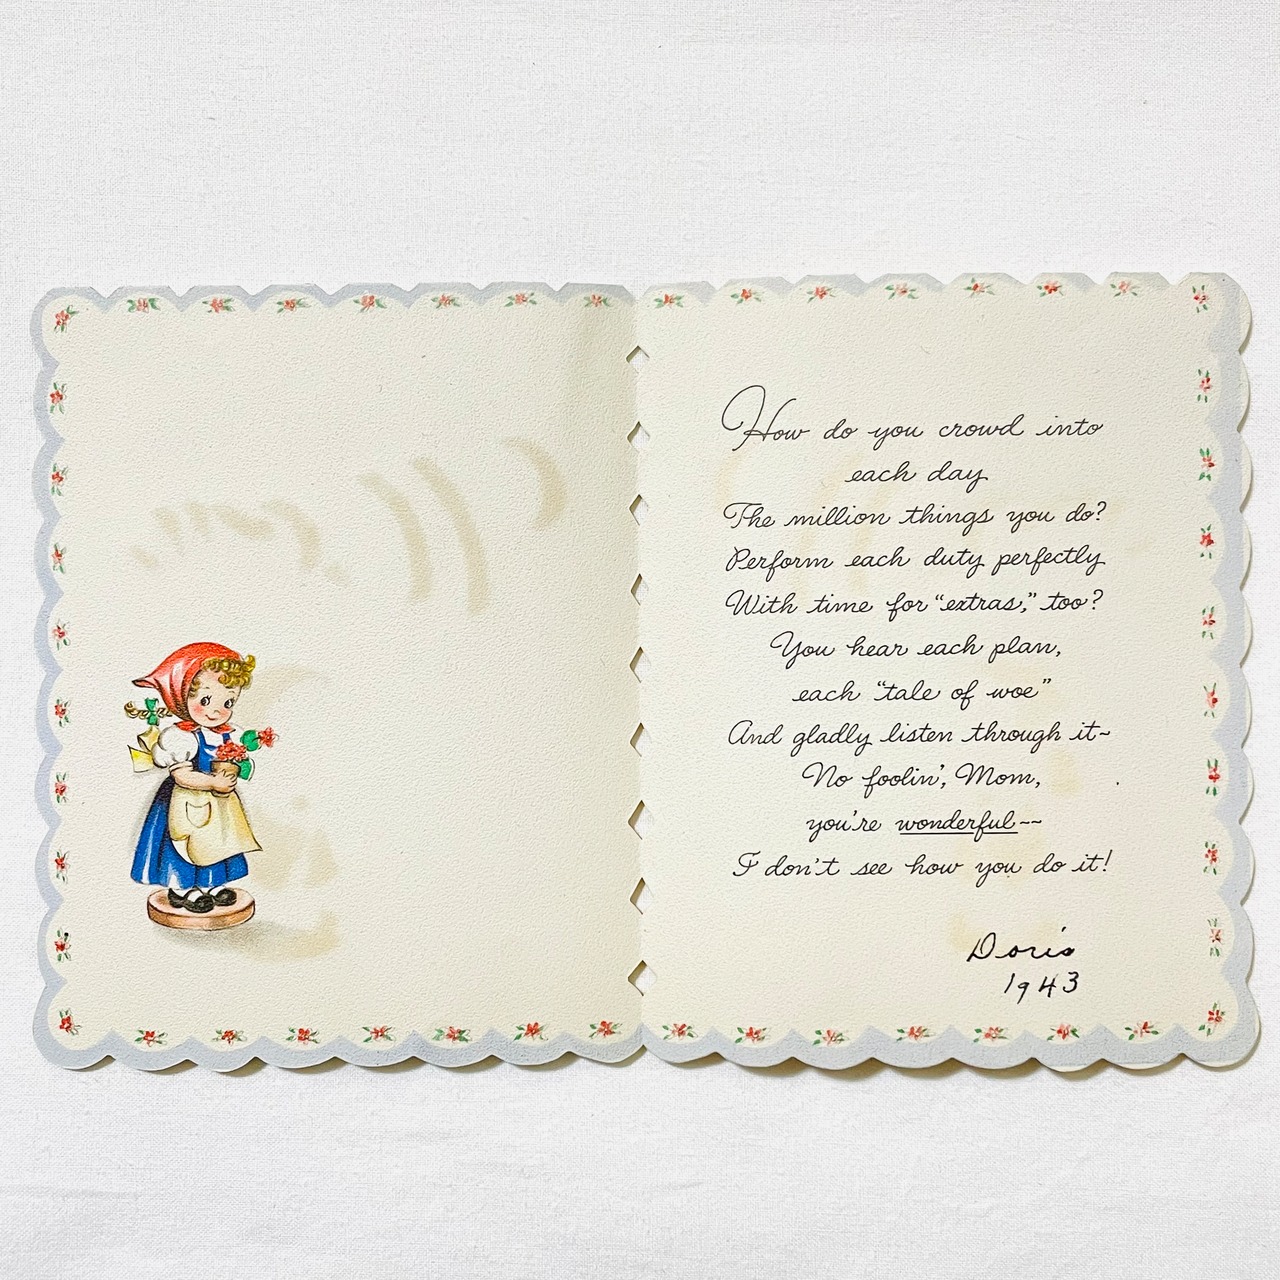 How do you crowd into
each day
The million things you do?
Perform each duty perfectly
With time for "extras," too?
You hear each plan,
each "tale of woe"
And gladly listen through it~
No foolin', Mom,
you're wonderful~~
I don't see how you do it!
Doris
1943